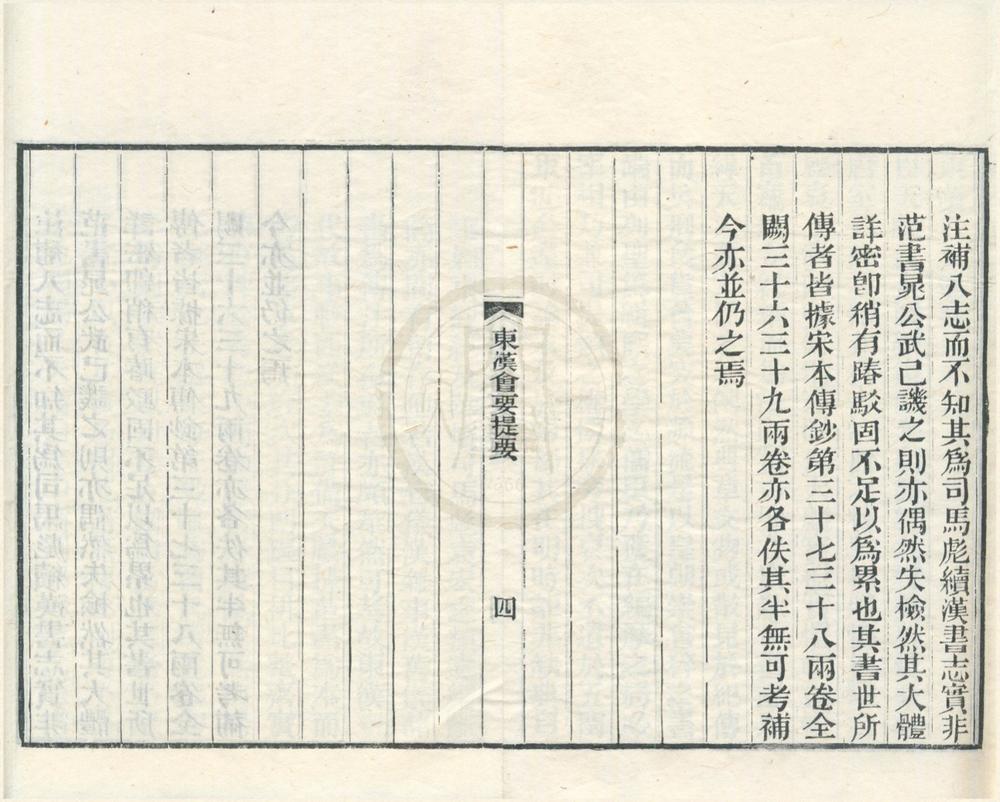 注補八志而不知其爲司馬彪續漢書志實非
范書晁公武已譏之則亦偶然失檢然其大體
詳密卽稍有踳駁固不足以爲累也其書世所
傳者皆據宋本傳鈔第三十七三十八兩卷全
闕三十六三十九兩卷亦各佚其半無可考補
今亦並仍之焉
東漢會要提要
四